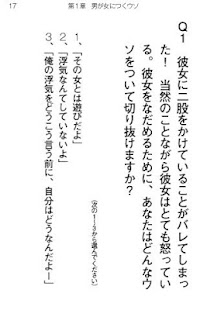 17
第1章 男が女につくウソ
Q1 彼女に二股をかけていることがバレてしまっ
た! 当然のことながら彼女はとても怒ってい
る。彼女をなだめるために、あなたはどんなウ
ソをついて切り抜けますか?
(次の1〜3から選んでください)
1、「その女とは遊びだよ」
2、「浮気なんてしていないよ」
3、「俺の浮気をどうこう言う前に、自分はどうなんだよ―」